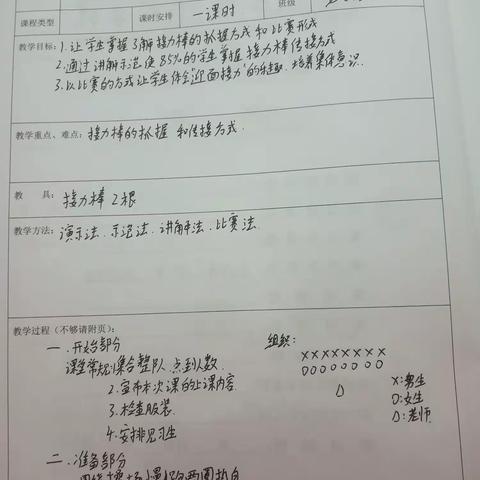 课程类型 课时安排 一课时 班级
教学目标: 1.让学生掌握了解接力棒的抓握方式和比赛形式
2.通过讲解示范使85%的学生掌握接力棒传接方式
3.以比赛的方式让学生体会"迎面接力"的乐趣.培养集体意识.
教学重点、难点: 接力棒的抓握 和传接方式.
教 具: 接力棒 2根
教学方法: 演示法、示范法、讲解法、比赛法.
教学过程(不够请附页):
一.开始部分 组织:
课堂常规:集合整队、点到人数. XXXXXXXX
OOOOOOOO
2.宣布本次课的上课内容. X:男生
3.检查服装. O:女生
4.安排见习生 :老师
二.准备部分